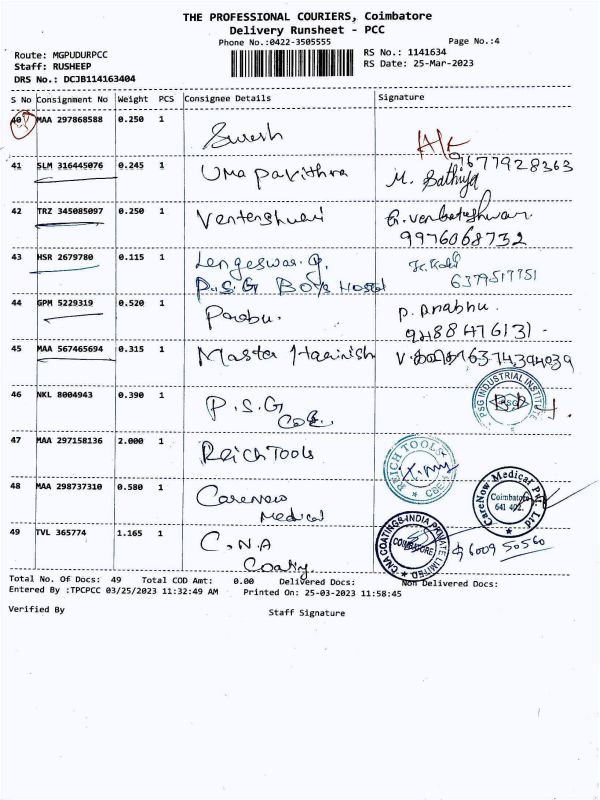 THE PROFESSIONAL COURIERS, Coimbatore
Delivery Runsheet - PCC
Phone No.:0422-3505555
Page No.:4
Route: MGPUDURPCC
Staff: RUSHEEP
DRS No.: DCJB114163404
RS No.: 1141634
RS Date: 25-Mar-2023
S No Consignment No Weight PCS Consignee Details Signature
40 MAA 297868588 0.250 1 Suresh
41 SLM 316445076 0.245 1 Uma pavithra M. Sathiya 9677928363
42 TRZ 345085097 0.250 1 G.venbateshwari
9976068732
43 HSR 2679780 0.115 1 Lengeswar.
P.S.G Boys Hostel 6379517751
44 GPM 5229319 0.520 1 Prabu. P. Prabhu
45 MAA 567465694 0.315 1 Master Haarinish
46 NKL 8004943 0.390 1 P.S.G PSG INDUSTRIAL INSTITUTE
47 MAA 297158136 2.000 1 Reich Tools REICH TOOLS CBE
48 MAA 298737310 0.580 1 Carenow
Medical CareNow Medical Pvt. Ltd. Coimbatore 641 402.
49 TVL 365774 1.165 1 C.N.A CNA COATINGS-INDIA PRIVATE LIMITED COIMBATORE 50560
Total No. Of Docs: 49 Total COD Amt: 0.00 Delivered Docs: Non Delivered Docs:
Entered By :TPCPCC 03/25/2023 11:32:49 AM Printed On: 25-03-2023 11:58:45
Verified By Staff Signature